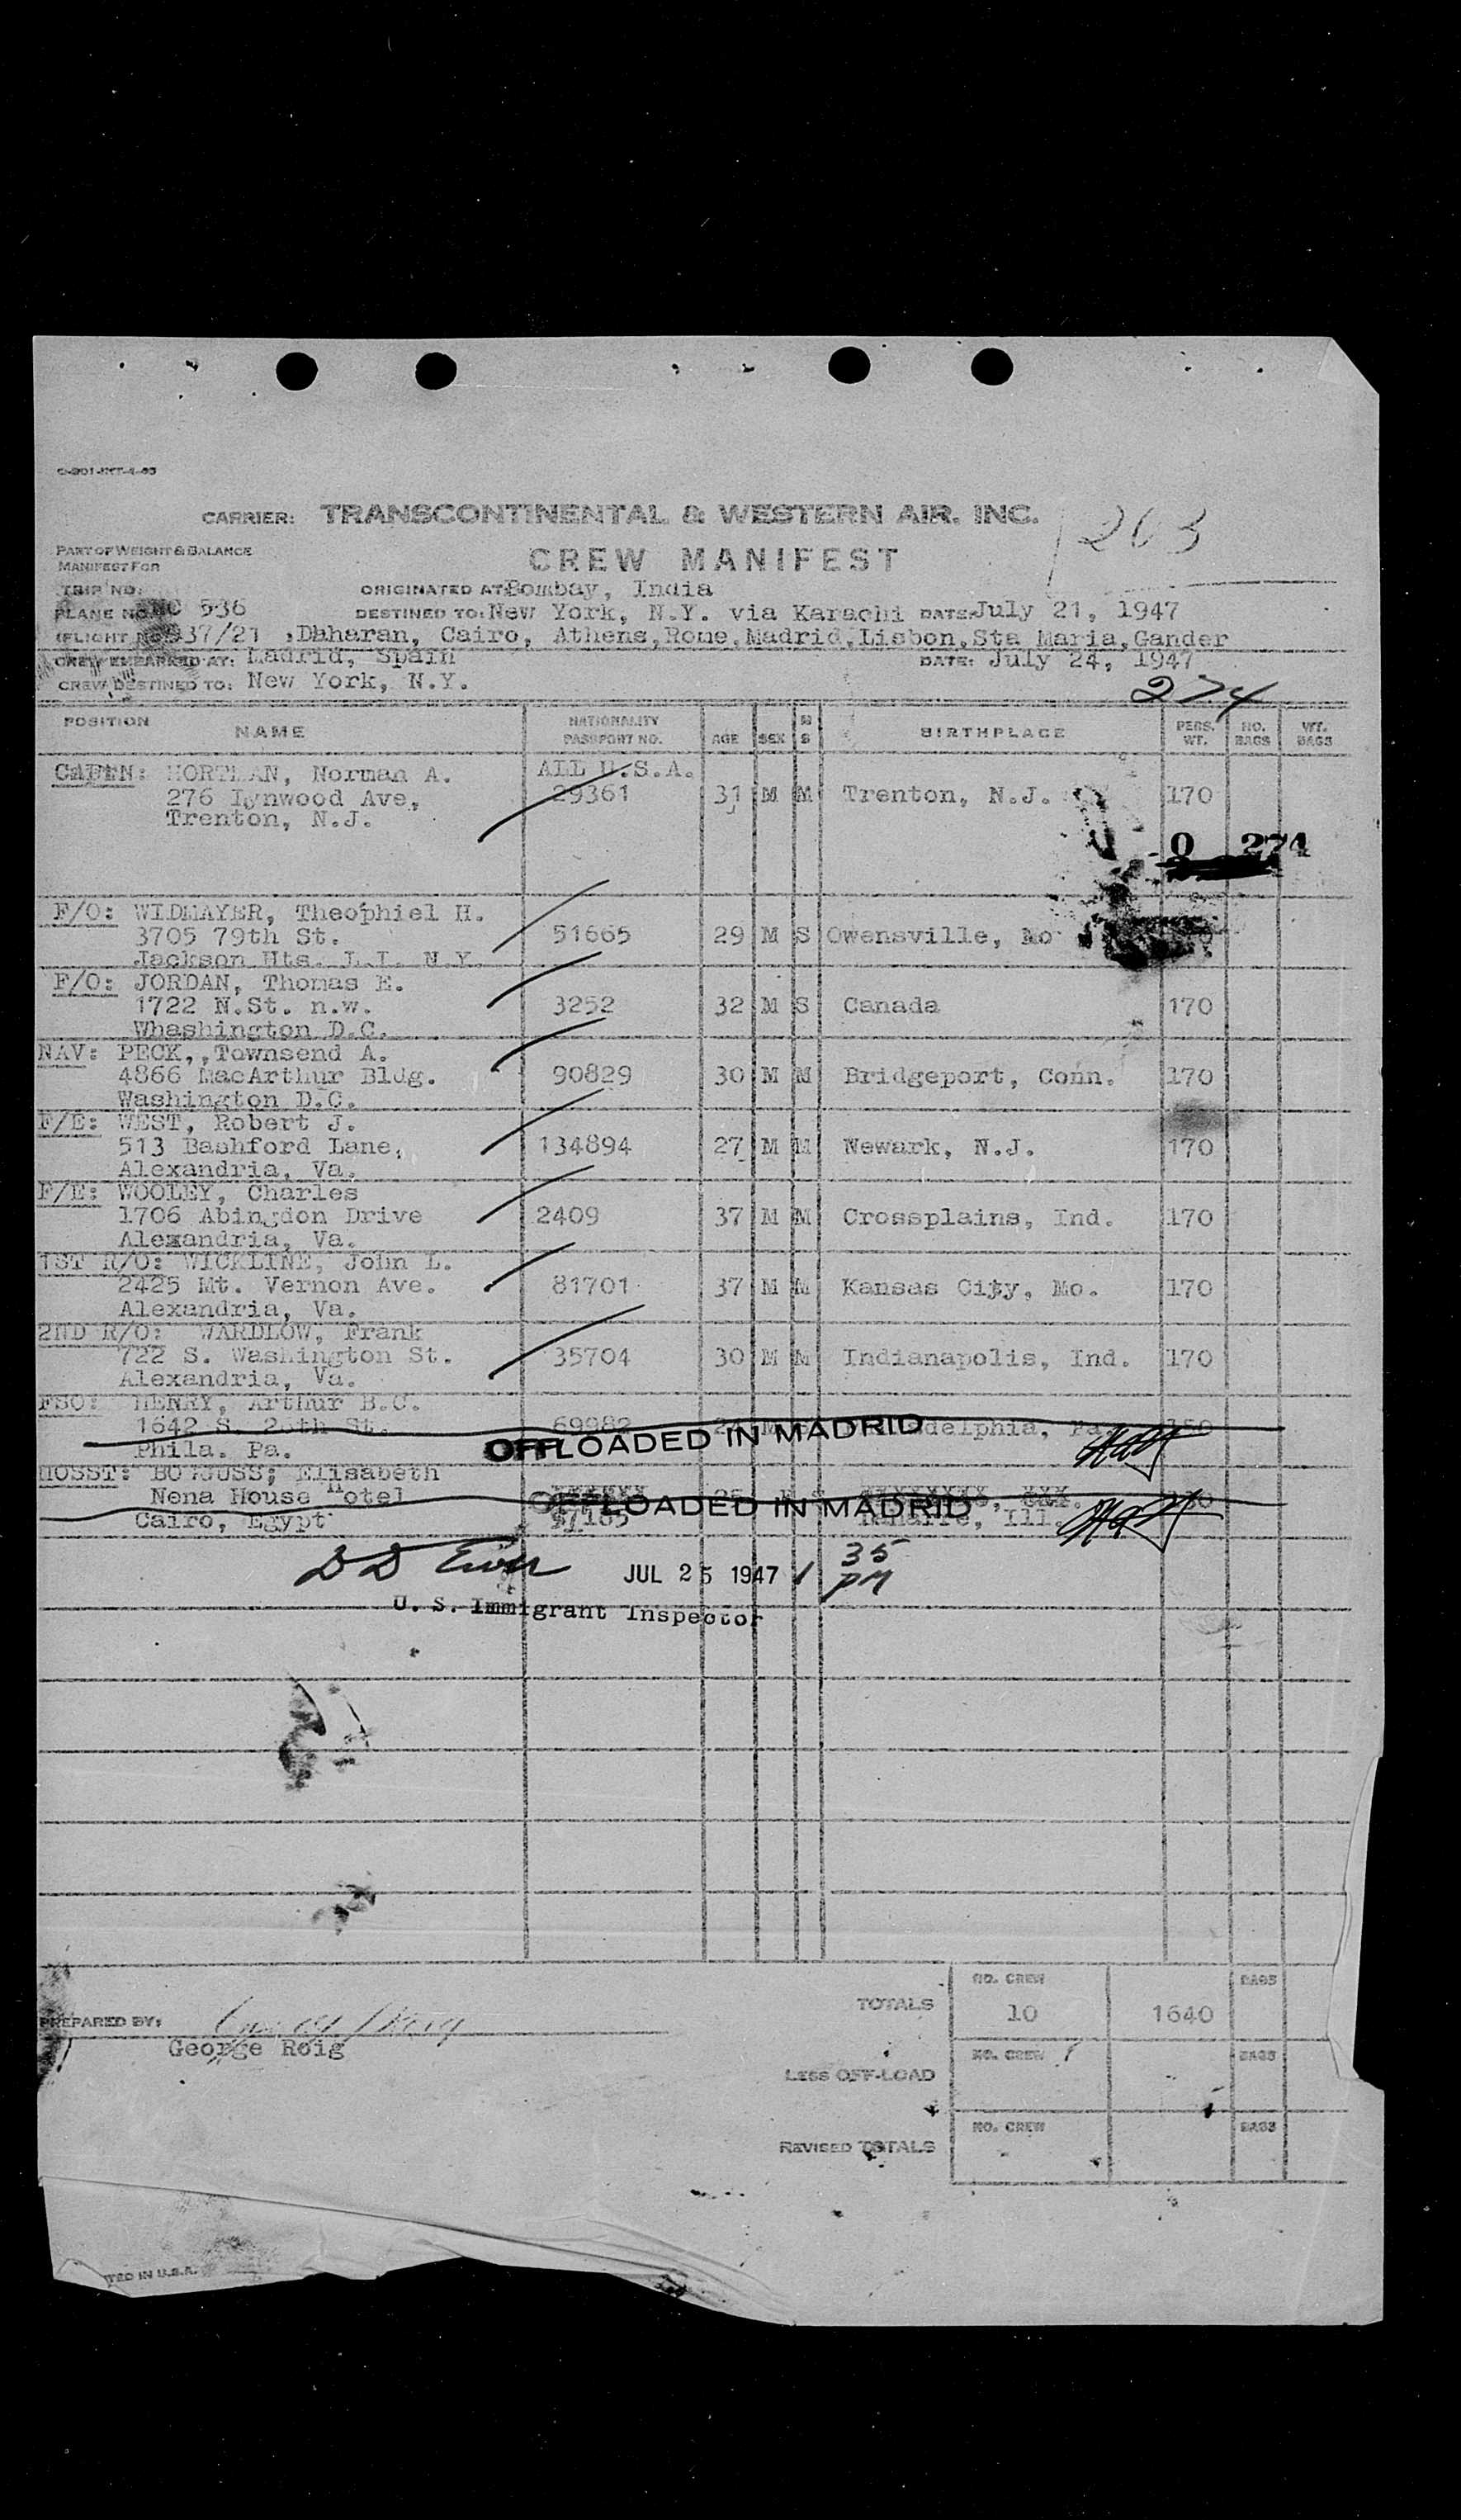 CARRIER: TRANSCONTINENTAL & WESTERN AIR. INC.
263
PART OF WEIGHT & BALANCE
MANIFEST FOR
CREW MANIFEST
TRIP NO:
ORIGINATED AT: Bombay, India
PLANE NO. NC 536
DESTINED TO: New York, N.Y. via Karachi DATE: July 21, 1947
(FLIGHT NO. 937/21 , Dhharan, Cairo, Athens, Rome, Madrid, Lisbon, Sta Maria, Gander
CREW EMBARKED AT: Ladrid, Spain
DATE: July 24, 1947
CREW DESTINED TO: New York, N.Y.
274
POSITION NAME NATIONALITY PASSPORT NO. AGE SEX M S BIRTHPLACE PERS. WT. NO. BAGS WT. BAGS
ALL U.S.A.
Norman A.
276 Lynwood Ave, 29361 31 M M Trenton, N.J. 170
Trenton, N.J.
0 274
F/O: WIDMAYER, Theophiel H.
3705 79th St. 51665 29 M S Owensville, Mo
Jackson Hts. L.I. N.Y.
F/O: JORDAN, Thomas E.
1722 N.St. n.w. 3252 32 M S Canada 170
Whashington D.C.
NAV: PECK,,Townsend A.
4866 MacArthur Bldg. 90829 30 M M Bridgeport, Conn. 170
Washington D.C.
F/E: WEST, Robert J.
513 Bashford Lane, 134894 27 M M Newark, N.J. 170
Alexandria, Va.
F/E: WOOLEY, Charles
1706 Abingdon Drive 2409 37 M M Crossplains, Ind. 170
Alexandria, Va.
1ST R/O: WICKLINE, John L.
2425 Mt. Vernon Ave. 81701 37 M M Kansas City, Mo. 170
Alexandria, Va.
2ND R/O: WARDLOW, Frank
722 S. Washington St. 35704 30 M M Indianapolis, Ind. 170
Alexandria, Va.
FSO: HENRY, Arthur B.C.
1642 S. St. 69982
OFFLOADED IN MADRID
Phila. Pa.
HOSST: Elisabeth
Nena House Hotel
OFFLOADED IN MADRID
Cairo, Egypt Ill.
JUL 25 1947 1 35 PM
U. S. Immigrant Inspector
NO. CREW BAGS
TOTALS 10 1640
PREPARED BY:
George Roig
NO. CREW BAGS
LESS OFF-LOAD
NO. CREW BAGS
REVISED TOTALS
IN U.S.A.